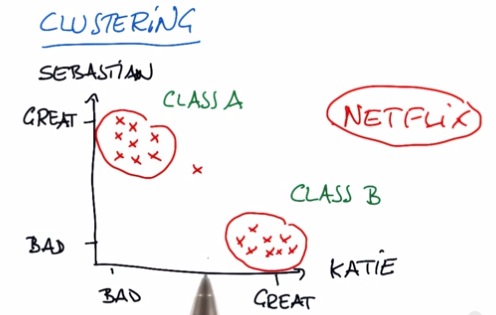 CLUSTERING
SEBASTIAN
GREAT
CLASS A
NETFLIX
CLASS B
BAD
KATIE
BAD
GREAT